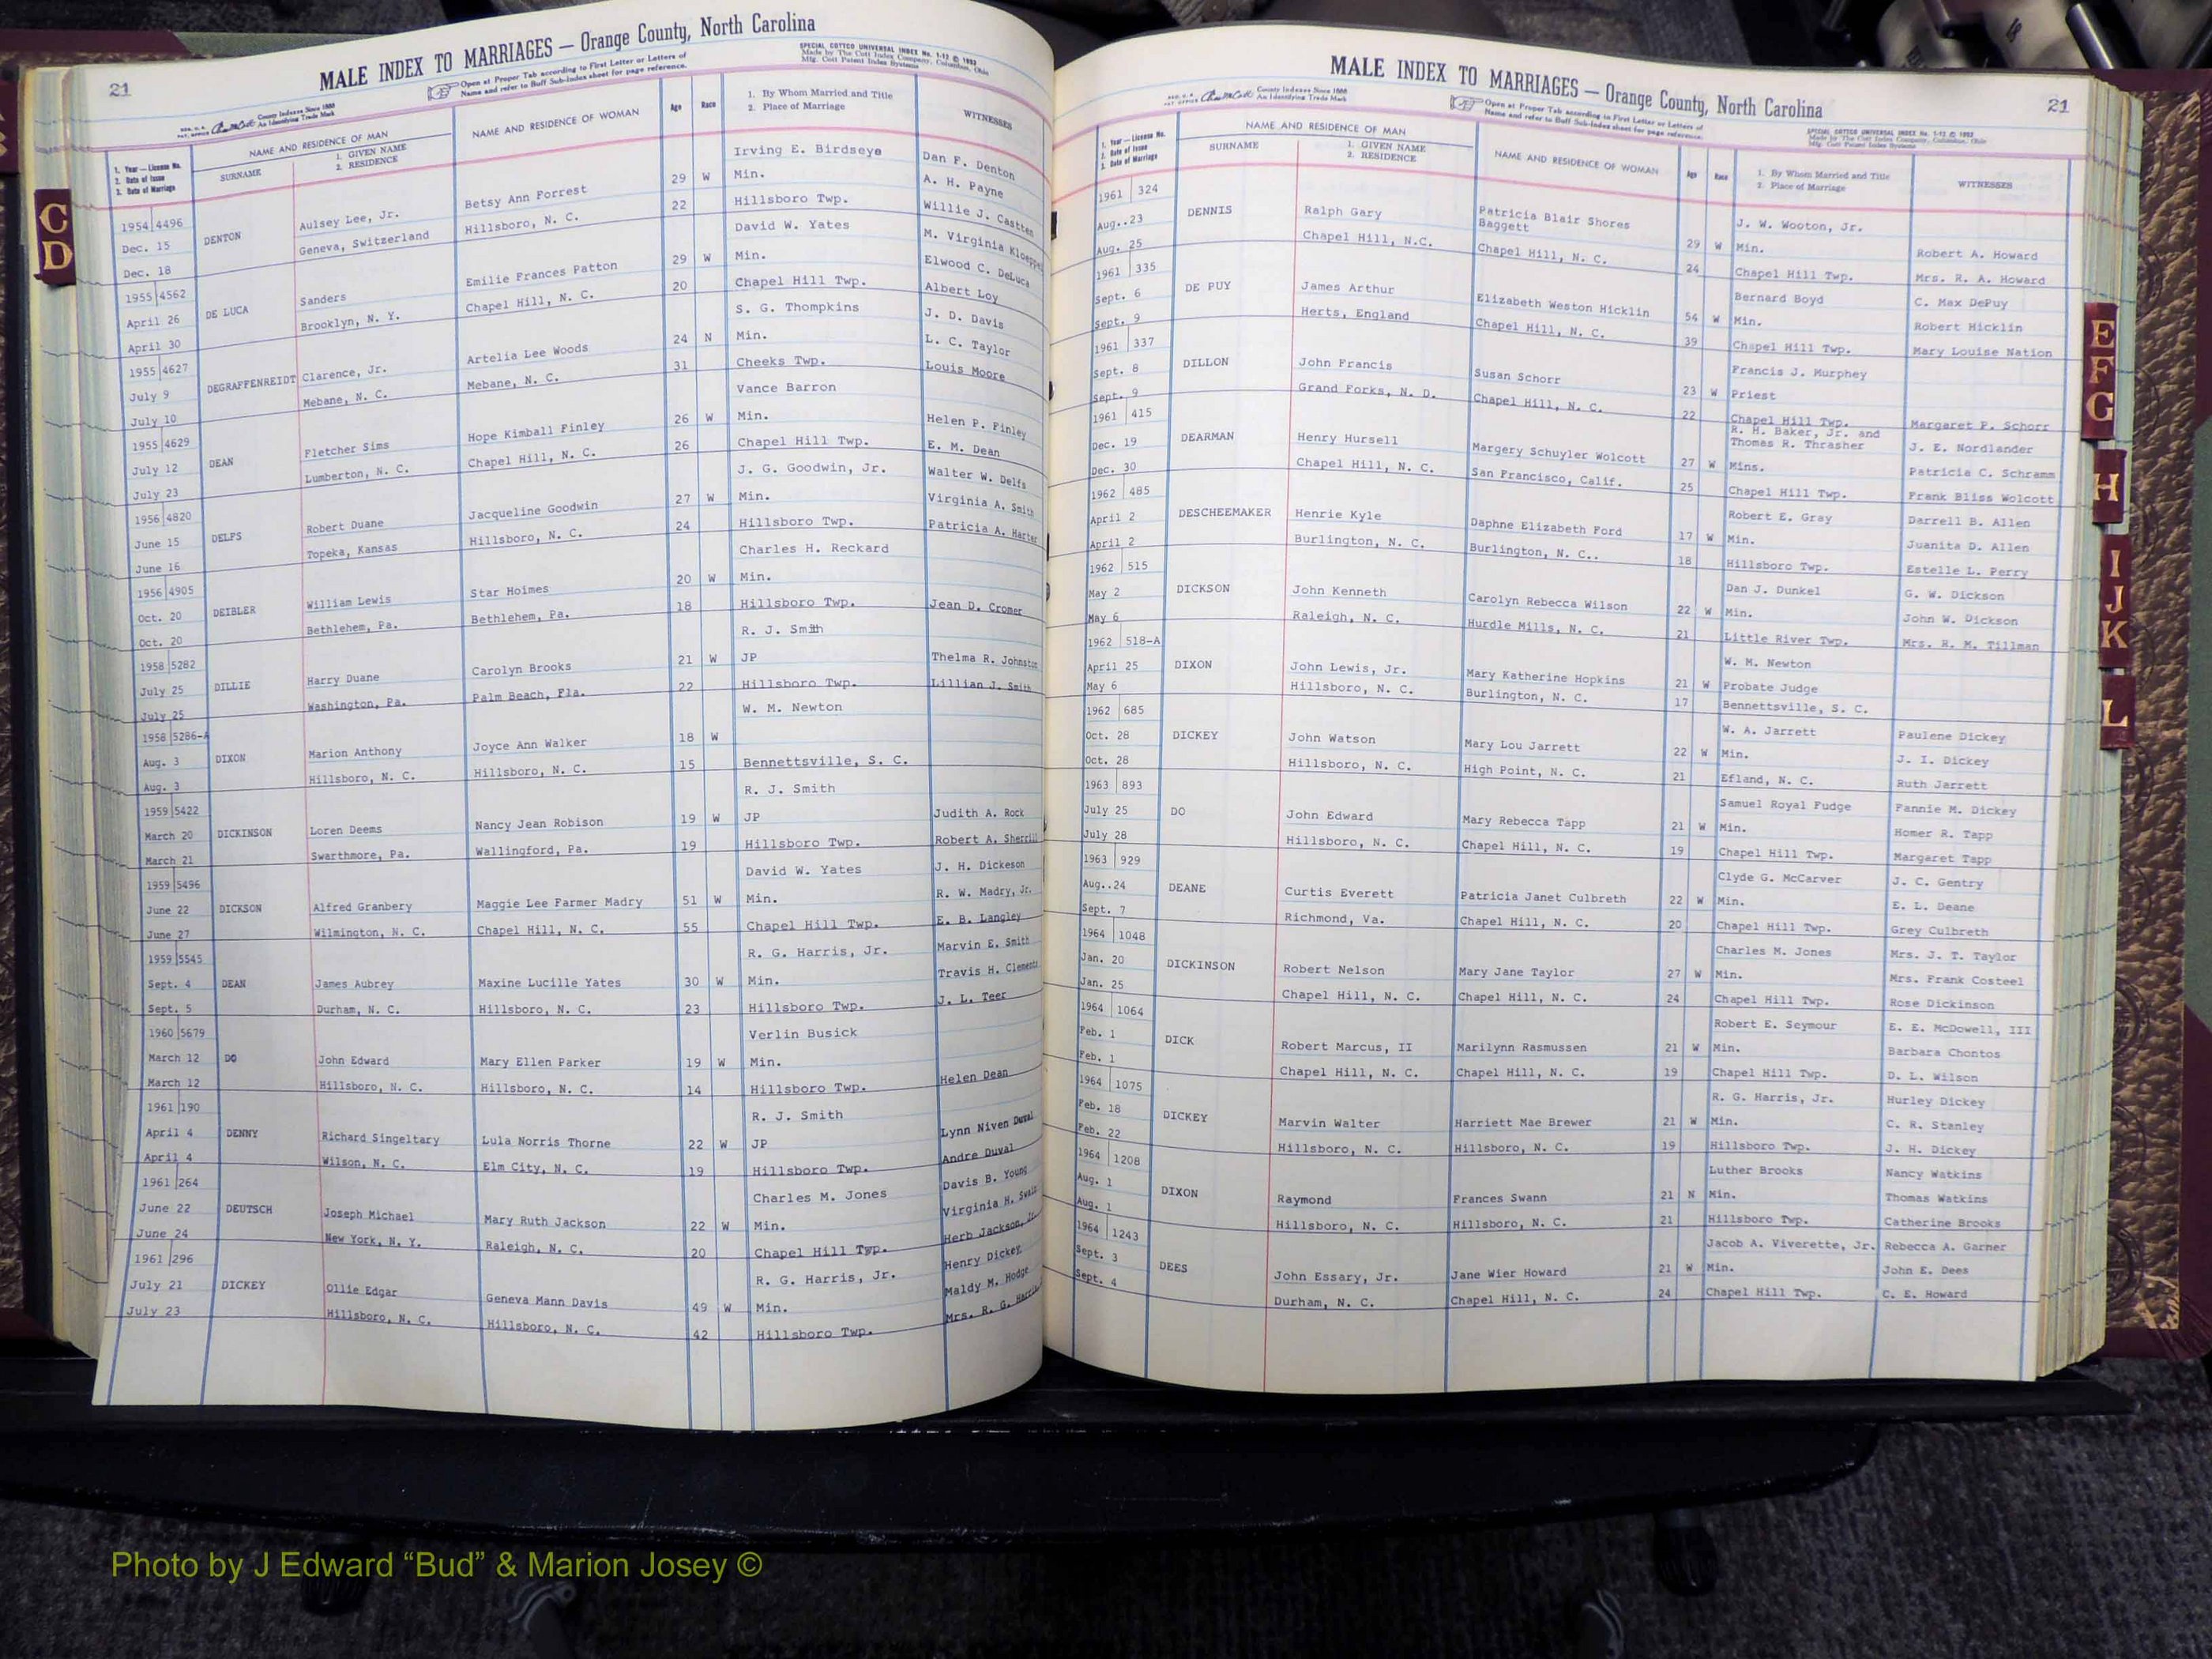 21
MALE INDEX TO MARRIAGES — Orange County, North Carolina
Open at Proper Tab according to First Letter or Letters of
Name and refer to Buff Sub-Index sheet for page reference.
SPECIAL COTTCO UNIVERSAL INDEX No. 1-12 © 1953
Made by The Cott Index Company, Columbus, Ohio
Mfg. Cott Patent Index Systems
County Indexes Since 1888
An Identifying Trade Mark
1. Year — License No.
2. Date of Issue
3. Date of Marriage
NAME AND RESIDENCE OF MAN
SURNAME
1. GIVEN NAME
2. RESIDENCE
NAME AND RESIDENCE OF WOMAN
Age
Race
1. By Whom Married and Title
2. Place of Marriage
WITNESSES
Irving E. Birdseye Dan F. Denton
1954 4496 Aulsey Lee, Jr. Betsy Ann Forrest 29 W Min. A. H. Payne
Dec. 15 DENTON Geneva, Switzerland Hillsboro, N. C. 22 Hillsboro Twp. Willie J. Castten
Dec. 18 David W. Yates M. Virginia Kloeppel
1955 4562 Sanders Emilie Frances Patton 29 W Min. Elwood C. DeLuca
April 26 DE LUCA Brooklyn, N. Y. Chapel Hill, N. C. 20 Chapel Hill Twp. Albert Loy
April 30 S. G. Thompkins J. D. Davis
1955 4627 Clarence, Jr. Artelia Lee Woods 24 N Min. L. C. Taylor
July 9 DEGRAFFENREIDT Mebane, N. C. Mebane, N. C. 31 Cheeks Twp. Louis Moore
July 10 Vance Barron
1955 4629 Fletcher Sims Hope Kimball Finley 26 W Min. Helen P. Finley
July 12 DEAN Lumberton, N. C. Chapel Hill, N. C. 26 Chapel Hill Twp. E. M. Dean
July 23 J. G. Goodwin, Jr. Walter W. Delfs
1956 4820 Robert Duane Jacqueline Goodwin 27 W Min. Virginia A. Smith
June 15 DELFS Topeka, Kansas Hillsboro, N. C. 24 Hillsboro Twp. Patricia A. Harter
June 16 Charles H. Reckard
1956 4905 William Lewis Star Hoimes 20 W Min.
Oct. 20 DEIBLER Bethlehem, Pa. Bethlehem, Pa. 18 Hillsboro Twp. Jean D. Cromer
Oct. 20 R. J. Smith
1958 5282 Harry Duane Carolyn Brooks 21 W JP Thelma R. Johnston
July 25 DILLIE Washington, Pa. Palm Beach, Fla. 22 Hillsboro Twp. Lillian J. Smith
July 25 W. M. Newton
1958 5286-A Marion Anthony Joyce Ann Walker 18 W
Aug. 3 DIXON Hillsboro, N. C. Hillsboro, N. C. 15 Bennettsville, S. C.
Aug. 3 R. J. Smith
1959 5422 Loren Deems Nancy Jean Robison 19 W JP Judith A. Rock
March 20 DICKINSON Swarthmore, Pa. Wallingford, Pa. 19 Hillsboro Twp. Robert A. Sherrill
March 21 David W. Yates J. H. Dickeson
1959 5496 Alfred Granbery Maggie Lee Farmer Madry 51 W Min. R. W. Madry, Jr.
June 22 DICKSON Wilmington, N. C. Chapel Hill, N. C. 55 Chapel Hill Twp. E. B. Langley
June 27 R. G. Harris, Jr. Marvin E. Smith
1959 5545 James Aubrey Maxine Lucille Yates 30 W Min. Travis H. Clements
Sept. 4 DEAN Durham, N. C. Hillsboro, N. C. 23 Hillsboro Twp. J. L. Teer
Sept. 5 Verlin Busick
1960 5679 John Edward Mary Ellen Parker 19 W Min.
March 12 DO Hillsboro, N. C. Hillsboro, N. C. 14 Hillsboro Twp. Helen Dean
March 12 R. J. Smith
1961 190 Richard Singeltary Lula Norris Thorne 22 W JP Lynn Niven Duval
April 4 DENNY Wilson, N. C. Elm City, N. C. 19 Hillsboro Twp. Andre Duval
April 4 Charles M. Jones Davis B. Young
1961 264 Joseph Michael Mary Ruth Jackson 22 W Min. Virginia H. Swain
June 22 DEUTSCH New York, N. Y. Raleigh, N. C. 20 Chapel Hill Twp. Herb Jackson, Jr.
June 24 R. G. Harris, Jr. Henry Dickey
1961 296 Ollie Edgar Geneva Mann Davis 49 W Min. Maldy M. Hodge
July 21 DICKEY Hillsboro, N. C. Hillsboro, N. C. 42 Hillsboro Twp. Mrs. R. G. Harris
July 23
MALE INDEX TO MARRIAGES — Orange County, North Carolina
21
County Indexes Since 1888
An Identifying Trade Mark
Open at Proper Tab according to First Letter or Letters of
Name and refer to Buff Sub-Index sheet for page reference.
SPECIAL COTTCO UNIVERSAL INDEX No. 1-12 © 1953
Made by The Cott Index Company, Columbus, Ohio
Mfg. Cott Patent Index Systems
1. Year — License No.
2. Date of Issue
3. Date of Marriage
NAME AND RESIDENCE OF MAN
SURNAME
1. GIVEN NAME
2. RESIDENCE
NAME AND RESIDENCE OF WOMAN
Age
Race
1. By Whom Married and Title
2. Place of Marriage
WITNESSES
1961 324 J. W. Wooton, Jr.
Aug..23 DENNIS Ralph Gary Patricia Blair Shores
Baggett 29 W Min. Robert A. Howard
Aug. 25 Chapel Hill, N.C. Chapel Hill, N. C. 24 Chapel Hill Twp. Mrs. R. A. Howard
1961 335 Bernard Boyd C. Max DePuy
Sept. 6 DE PUY James Arthur Elizabeth Weston Hicklin 54 W Min. Robert Hicklin
Sept. 9 Herts, England Chapel Hill, N. C. 39 Chapel Hill Twp. Mary Louise Nation
1961 337 Francis J. Murphey
Sept. 8 DILLON John Francis Susan Schorr 23 W Priest
Sept. 9 Grand Forks, N. D. Chapel Hill, N. C. 22 Chapel Hill Twp. Margaret P. Schorr
1961 415 R. H. Baker, Jr. and
Thomas R. Thrasher J. E. Nordlander
Dec. 19 DEARMAN Henry Hursell Margery Schuyler Wolcott 27 W Mins. Patricia C. Schramm
Dec. 30 Chapel Hill, N. C. San Francisco, Calif. 25 Chapel Hill Twp. Frank Bliss Wolcott
1962 485 Robert E. Gray Darrell B. Allen
April 2 DESCHEEMAKER Henrie Kyle Daphne Elizabeth Ford 17 W Min. Juanita D. Allen
April 2 Burlington, N. C. Burlington, N. C.. 18 Hillsboro Twp. Estelle L. Perry
1962 515 Dan J. Dunkel G. W. Dickson
May 2 DICKSON John Kenneth Carolyn Rebecca Wilson 22 W Min. John W. Dickson
May 6 Raleigh, N. C. Hurdle Mills, N. C. 21 Little River Twp. Mrs. R. M. Tillman
1962 518-A W. M. Newton
April 25 DIXON John Lewis, Jr. Mary Katherine Hopkins 21 W Probate Judge
May 6 Hillsboro, N. C. Burlington, N. C. 17 Bennettsville, S. C.
1962 685 W. A. Jarrett Paulene Dickey
Oct. 28 DICKEY John Watson Mary Lou Jarrett 22 W Min. J. I. Dickey
Oct. 28 Hillsboro, N. C. High Point, N. C. 21 Efland, N. C. Ruth Jarrett
1963 893 Samuel Royal Fudge Fannie M. Dickey
July 25 DO John Edward Mary Rebecca Tapp 21 W Min. Homer R. Tapp
July 28 Hillsboro, N. C. Chapel Hill, N. C. 19 Chapel Hill Twp. Margaret Tapp
1963 929 Clyde G. McCarver J. C. Gentry
Aug..24 DEANE Curtis Everett Patricia Janet Culbreth 22 W Min. E. L. Deane
Sept. 7 Richmond, Va. Chapel Hill, N. C. 20 Chapel Hill Twp. Grey Culbreth
1964 1048 Charles M. Jones Mrs. J. T. Taylor
Jan. 20 DICKINSON Robert Nelson Mary Jane Taylor 27 W Min. Mrs. Frank Costeel
Jan. 25 Chapel Hill, N. C. Chapel Hill, N. C. 24 Chapel Hill Twp. Rose Dickinson
1964 1064 Robert E. Seymour E. E. McDowell, III
Feb. 1 DICK Robert Marcus, II Marilynn Rasmussen 21 W Min. Barbara Chontos
Feb. 1 Chapel Hill, N. C. Chapel Hill, N. C. 19 Chapel Hill Twp. D. L. Wilson
1964 1075 R. G. Harris, Jr. Hurley Dickey
Feb. 18 DICKEY Marvin Walter Harriett Mae Brewer 21 W Min. C. R. Stanley
Feb. 22 Hillsboro, N. C. Hillsboro, N. C. 19 Hillsboro Twp. J. H. Dickey
1964 1208 Luther Brooks Nancy Watkins
Aug. 1 DIXON Raymond Frances Swann 21 N Min. Thomas Watkins
Aug. 1 Hillsboro, N. C. Hillsboro, N. C. 21 Hillsboro Twp. Catherine Brooks
1964 1243 Jacob A. Viverette, Jr. Rebecca A. Garner
Sept. 3 DEES John Essary, Jr. Jane Wier Howard 21 W Min. John E. Dees
Sept. 4 Durham, N. C. Chapel Hill, N. C. 24 Chapel Hill Twp. C. E. Howard
C
D
E
F
G
H
I
J
K
L
Photo by J Edward “Bud” & Marion Josey ©